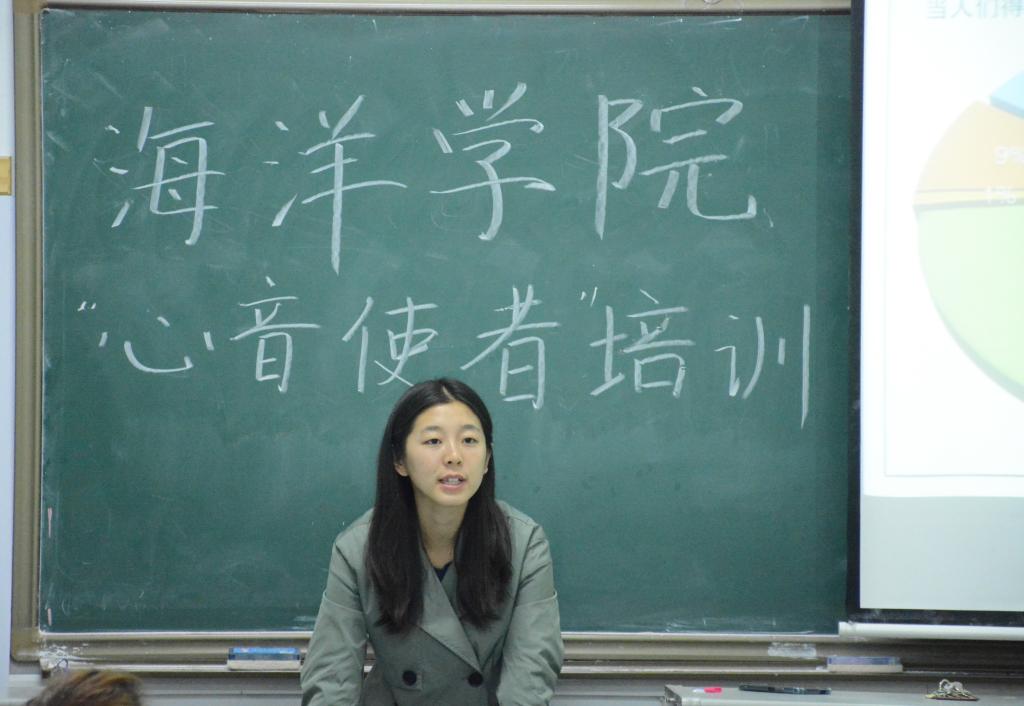 海洋学院
“心音使者”培训
当人们得
9%
1%